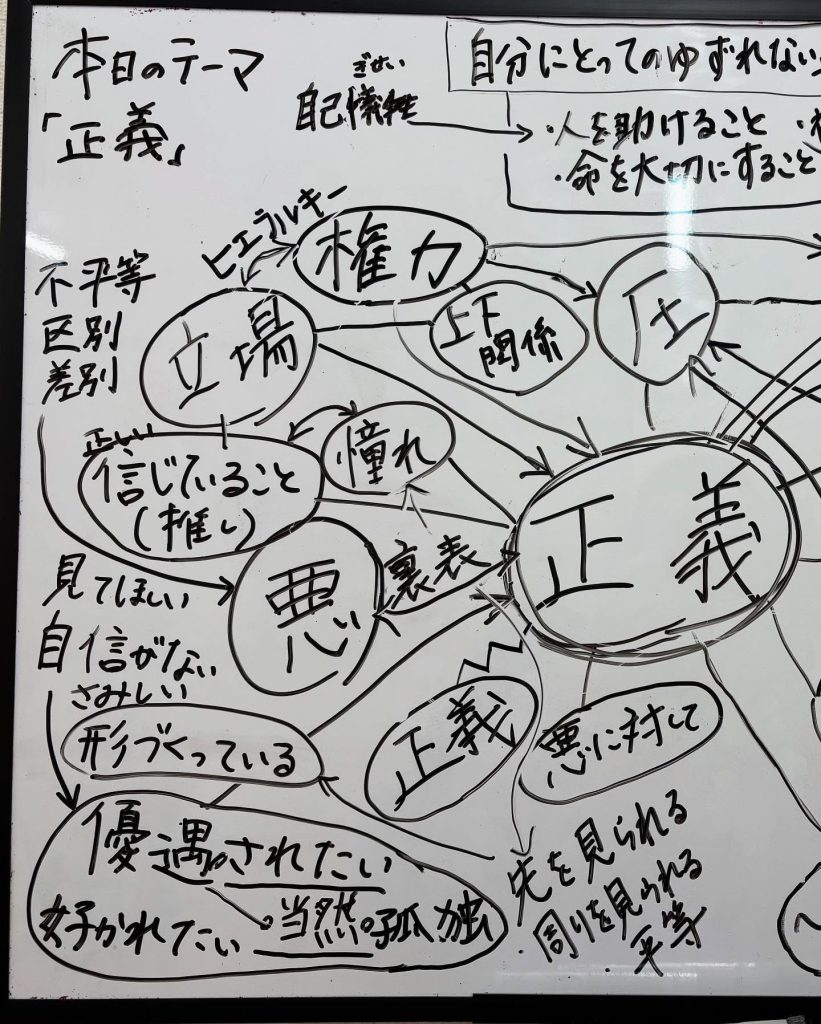 本日のテーマ
「正義」
ぎせい
自己犠牲
自分にとってのゆずれない
・人を助けること
・命を大切にすること
ヒエラルキー
権力
不平等
区別
差別
立場
上下
関係
圧
正しい
信じていること
(推し)
憧れ
正義
悪
裏表
見てほしい
自信がない
さみしい
形づくっている
正義
悪に対して
優遇されたい
好かれたい
当然
孤独
先を見られる
・周りを見られる
・平等